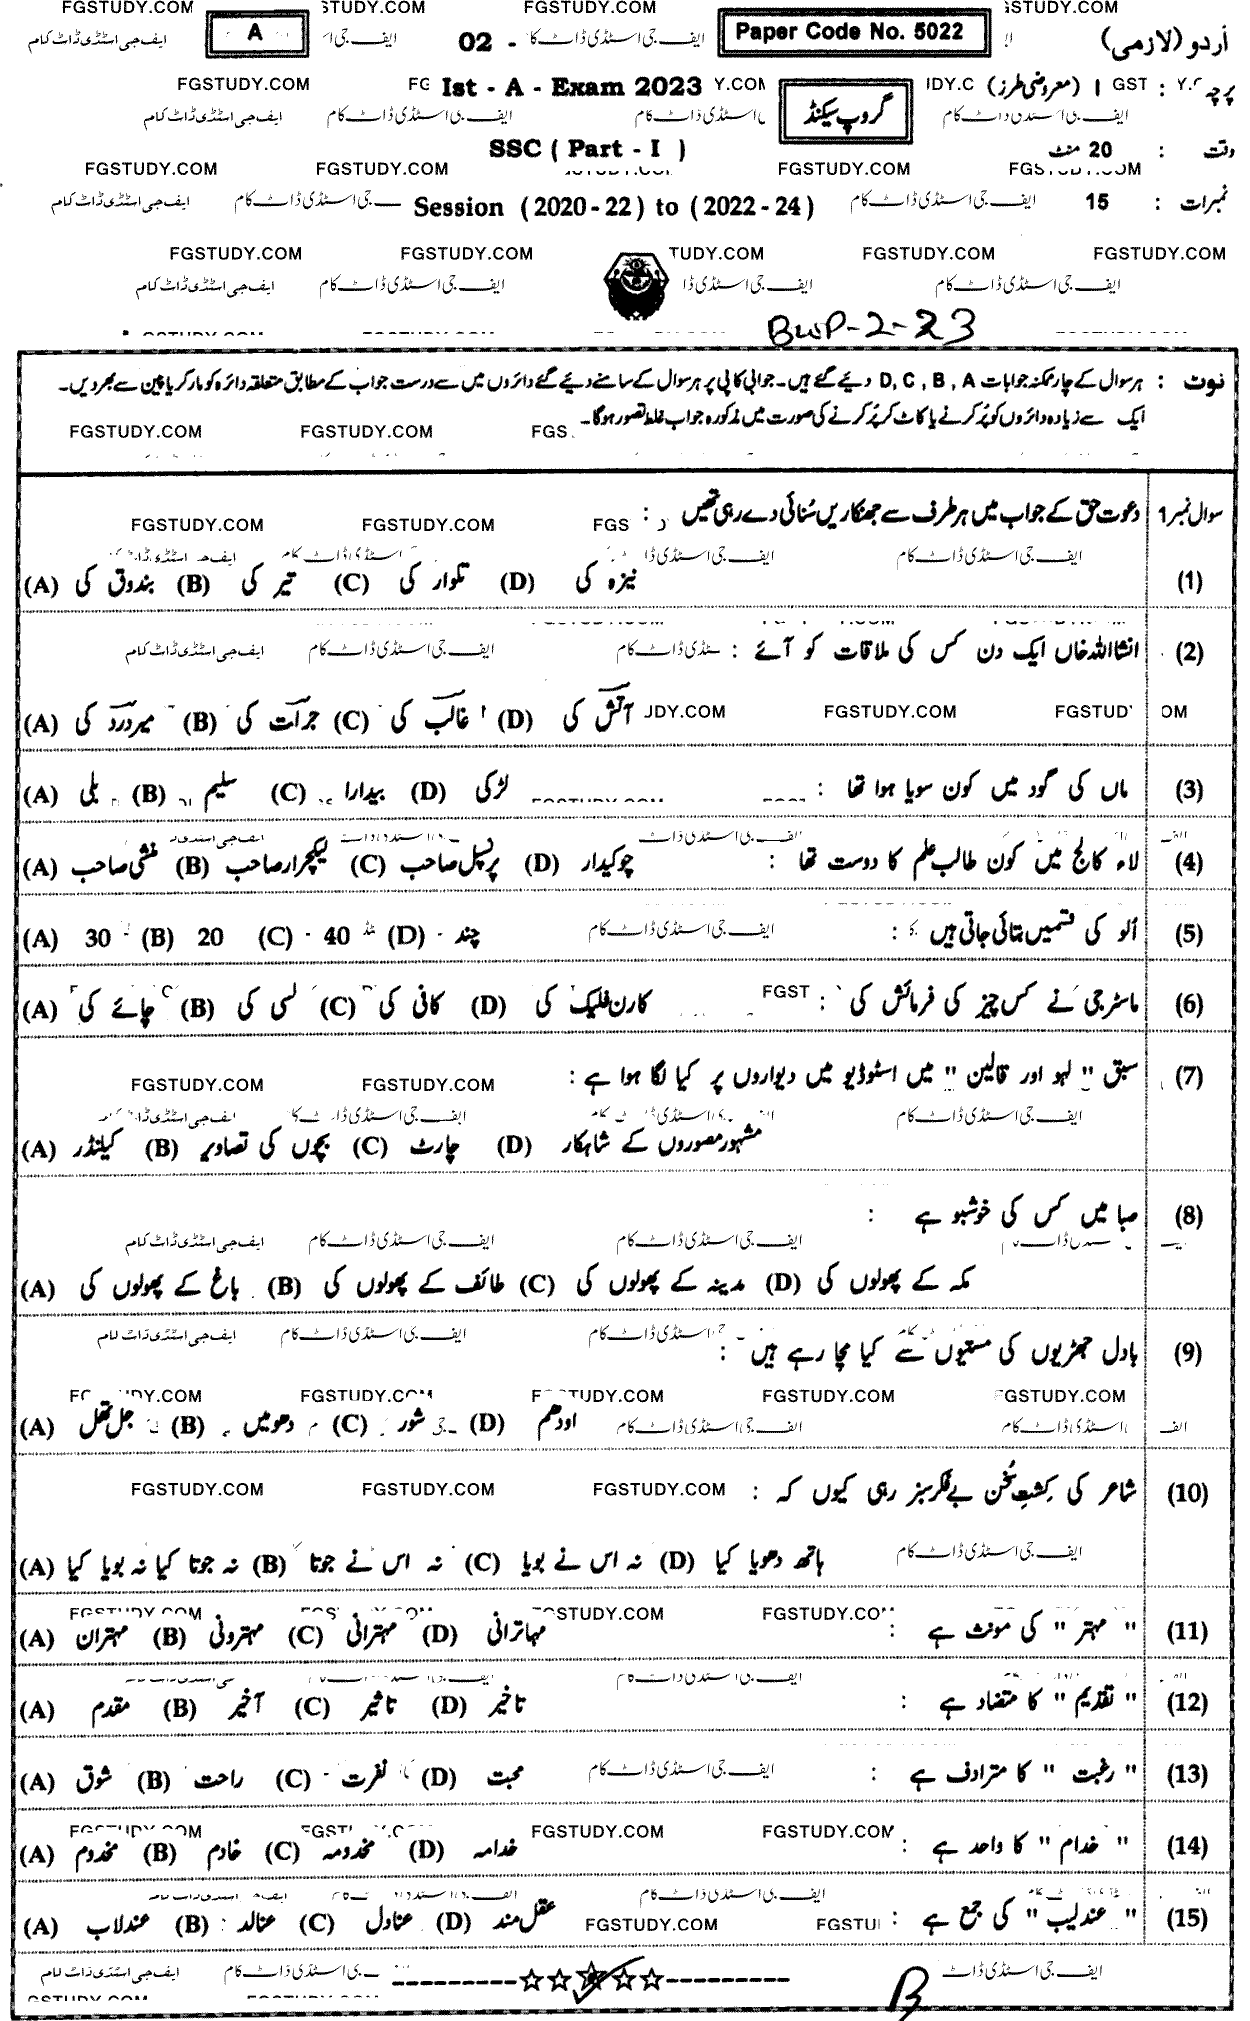 اُردو (لازمی) Paper Code No. 5022 02 - A
پرچہ : I (معروضی طرز) گروپ سیکنڈ Ist - A - Exam 2023
وقت : 20 منٹ SSC ( Part - I )
نمبرات : 15 Session (2020-22) to (2022-24)
BWP-2-23
نوٹ : ہر سوال کے چار ممکنہ جوابات D, C, B, A دیئے گئے ہیں۔ جوابی کاپی پر ہر سوال کے سامنے دیئے گئے دائروں میں سے درست جواب کے مطابق متعلقہ دائرہ کو مارکر یا پین سے بھر دیں۔
ایک سے زیادہ دائروں کو پُر کرنے یا کاٹ کر پُر کرنے کی صورت میں مذکورہ جواب غلط تصور ہوگا۔
سوال نمبر 1 دعوت حق کے جواب میں ہر طرف سے جھنکاریں سُنائی دے رہی تھیں :
(1) (A) بندوق کی (B) تیر کی (C) تلوار کی (D) نیزہ کی
(2) انشااللہ خاں ایک دن کس کی ملاقات کو آئے :
(A) میر درد کی (B) جرات کی (C) غالب کی (D) آتش کی
(3) ماں کی گود میں کون سویا ہوا تھا : (A) بلی (B) سلیم (C) بیدارا (D) لڑکی
(4) لاء کالج میں کون طالب علم کا دوست تھا : (A) منشی صاحب (B) لیکچرار صاحب (C) پرنسپل صاحب (D) چوکیدار
(5) اُلو کی قسمیں بتائی جاتی ہیں : (A) 30 (B) 20 (C) 40 (D) چند
(6) ماسٹر جی نے کس چیز کی فرمائش کی : (A) چائے کی (B) لسی کی (C) کافی کی (D) کارن فلیک کی
(7) سبق " لہو اور قالین " میں اسٹوڈیو میں دیواروں پر کیا لگا ہوا ہے :
(A) کیلنڈر (B) بچوں کی تصاویر (C) چارٹ (D) مشہور مصوروں کے شاہکار
(8) صبا میں کس کی خوشبو ہے :
(A) باغ کے پھولوں کی (B) طائف کے پھولوں کی (C) مدینہ کے پھولوں کی (D) مکہ کے پھولوں کی
(9) بادل جھڑیوں کی مستیوں سے کیا مچا رہے ہیں :
(A) جل تھل (B) دھومیں (C) شور (D) اودھم
(10) شاعر کی کِشتِ سُخن بے فکر سبز رہی کیوں کہ :
(A) نہ جوتا کیا نہ بویا کیا (B) نہ اس نے جوتا (C) نہ اس نے بویا (D) ہاتھ دھویا کیا
(11) " مہتر " کی مونث ہے : (A) مہتران (B) مہترونی (C) مہترانی (D) مہاترانی
(12) " تقدیم " کا متضاد ہے : (A) مقدم (B) آخیر (C) تاثیر (D) تاخیر
(13) " رغبت " کا مترادف ہے : (A) شوق (B) راحت (C) نفرت (D) محبت
(14) " خدام " کا واحد ہے : (A) مخدوم (B) خادم (C) مخدومہ (D) خدامہ
(15) " عندلیب " کی جمع ہے : (A) عندلاب (B) عنالد (C) عنادل (D) عقل مند
FGSTUDY.COM
ایف جی اسٹڈی ڈاٹ کام